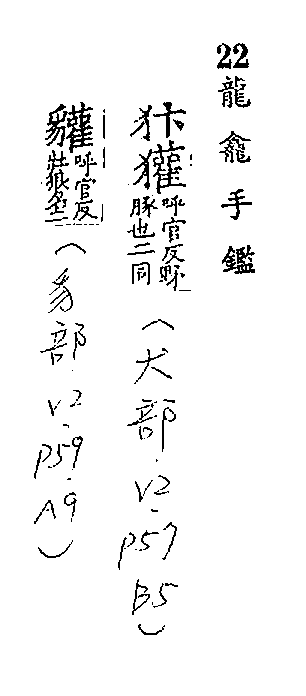 22 龍龕手鑑
犿獾呼官反野
豚也二同
(犬部.V2-P57 B5)
貛呼官反
牡狼名
(豸部.V2-P59.A9)